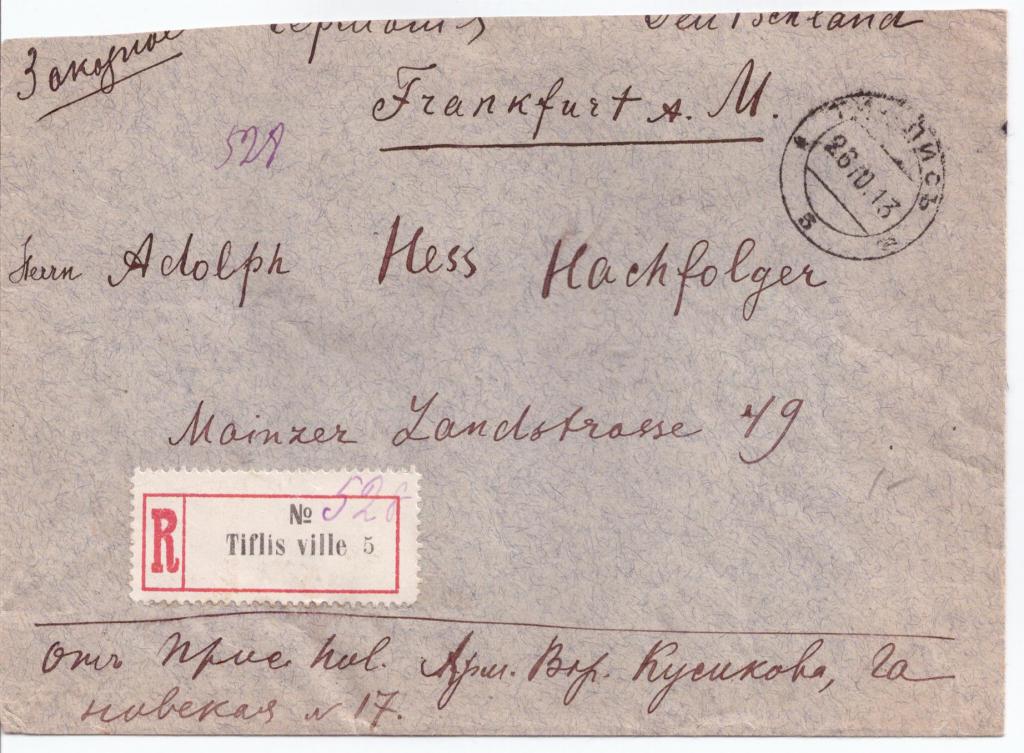 Заказное Германія Deutschland
Frankfurt a. M.
528
ТИФЛИСЪ
26 IV. 13
5
Herrn Adolph Hess Nachfolger
Mainzer Landstrasse 49
R № 528
Tiflis ville 5
отъ Прис. Пов. Арт. Вор. Кусикова, Га
новская № 17.